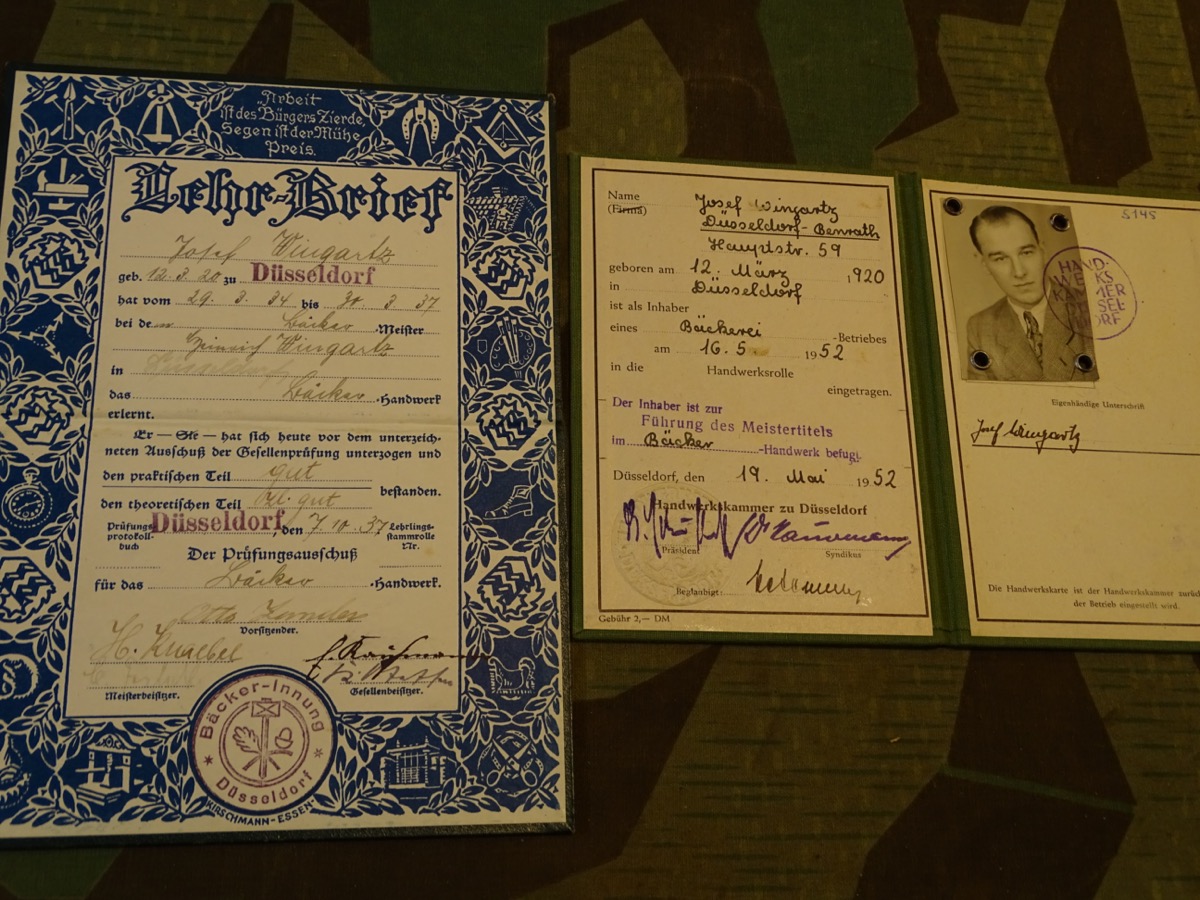 „Arbeit
ist des Bürgers Zierde,
Segen ist der Mühe
Preis.
Lehr-Brief
Josef Wingartz
geb. 12.3.20 zu Düsseldorf
hat vom 29.3.34 bis 30.3.37
bei dem Bäcker-Meister
Heinrich Wingartz
in Düsseldorf
das Bäcker-Handwerk
erlernt.
Er — Sie — hat sich heute vor dem unterzeich-
neten Ausschuß der Gesellenprüfung unterzogen und
den praktischen Teil gut
bestanden.
den theoretischen Teil zl. gut
Prüfungs-
protokoll-
buch
Düsseldorf, den 7.10.37
Lehrlings-
stammrolle
Nr.
Der Prüfungsausschuß
für das Bäcker-Handwerk.
Otto
Vorsitzender.
H. Knaebel
Meisterbeisitzer.
Gesellenbeisitzer.
Bäcker-Innung
* Düsseldorf *
KIRSCHMANN-ESSEN
Name
(Firma)
Josef Wingartz
Düsseldorf-Benrath
Hauptstr. 59
geboren am 12. März 1920
in Düsseldorf
ist als Inhaber
eines Bäckerei -Betriebes
am 16.5. 1952
in die Handwerksrolle
eingetragen.
Der Inhaber ist zur
Führung des Meistertitels
im Bäcker -Handwerk befugt.
Düsseldorf, den 19. Mai 1952
Handwerkskammer zu Düsseldorf
Präsident
Syndikus
Beglaubigt:
Gebühr 2,— DM
5145
HAND-
WERKS
KAMMER
DÜSSEL-
DORF
Eigenhändige Unterschrift
Josef Wingartz
Die Handwerkskarte ist der Handwerkskammer zurück
der Betrieb eingestellt wird.